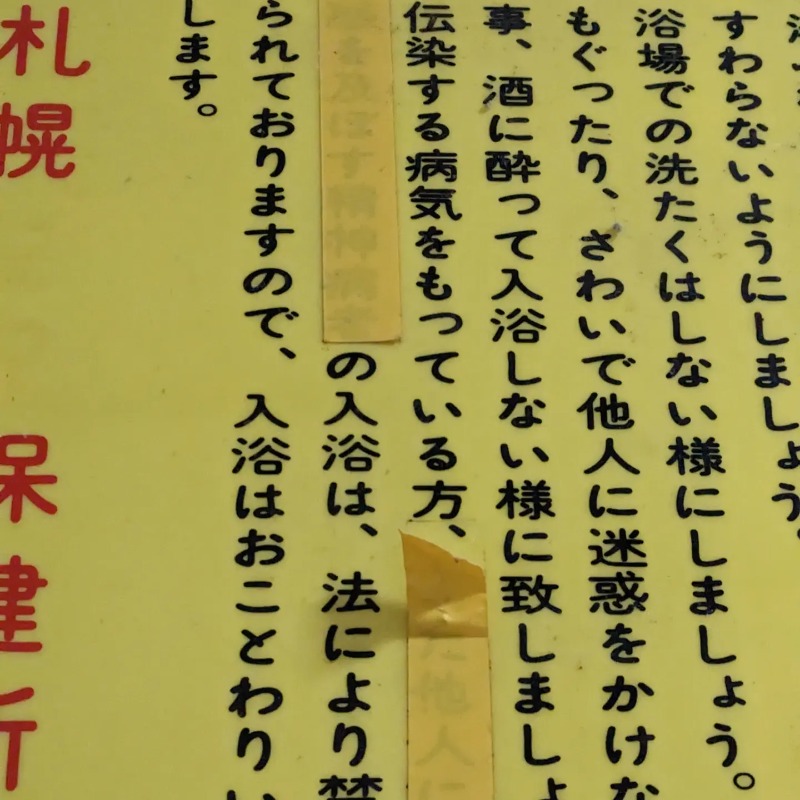 すわらないようにしましょう。
浴場での洗たくはしない様にしましょう。
もぐったり、さわいで他人に迷惑をかけな
事、酒に酔って入浴しない様に致しましょ
伝染する病気をもっている方、た他人に
を及ぼす精神病者の入浴は、法により禁
られておりますので、入浴はおことわりい
します。
札幌 保健所